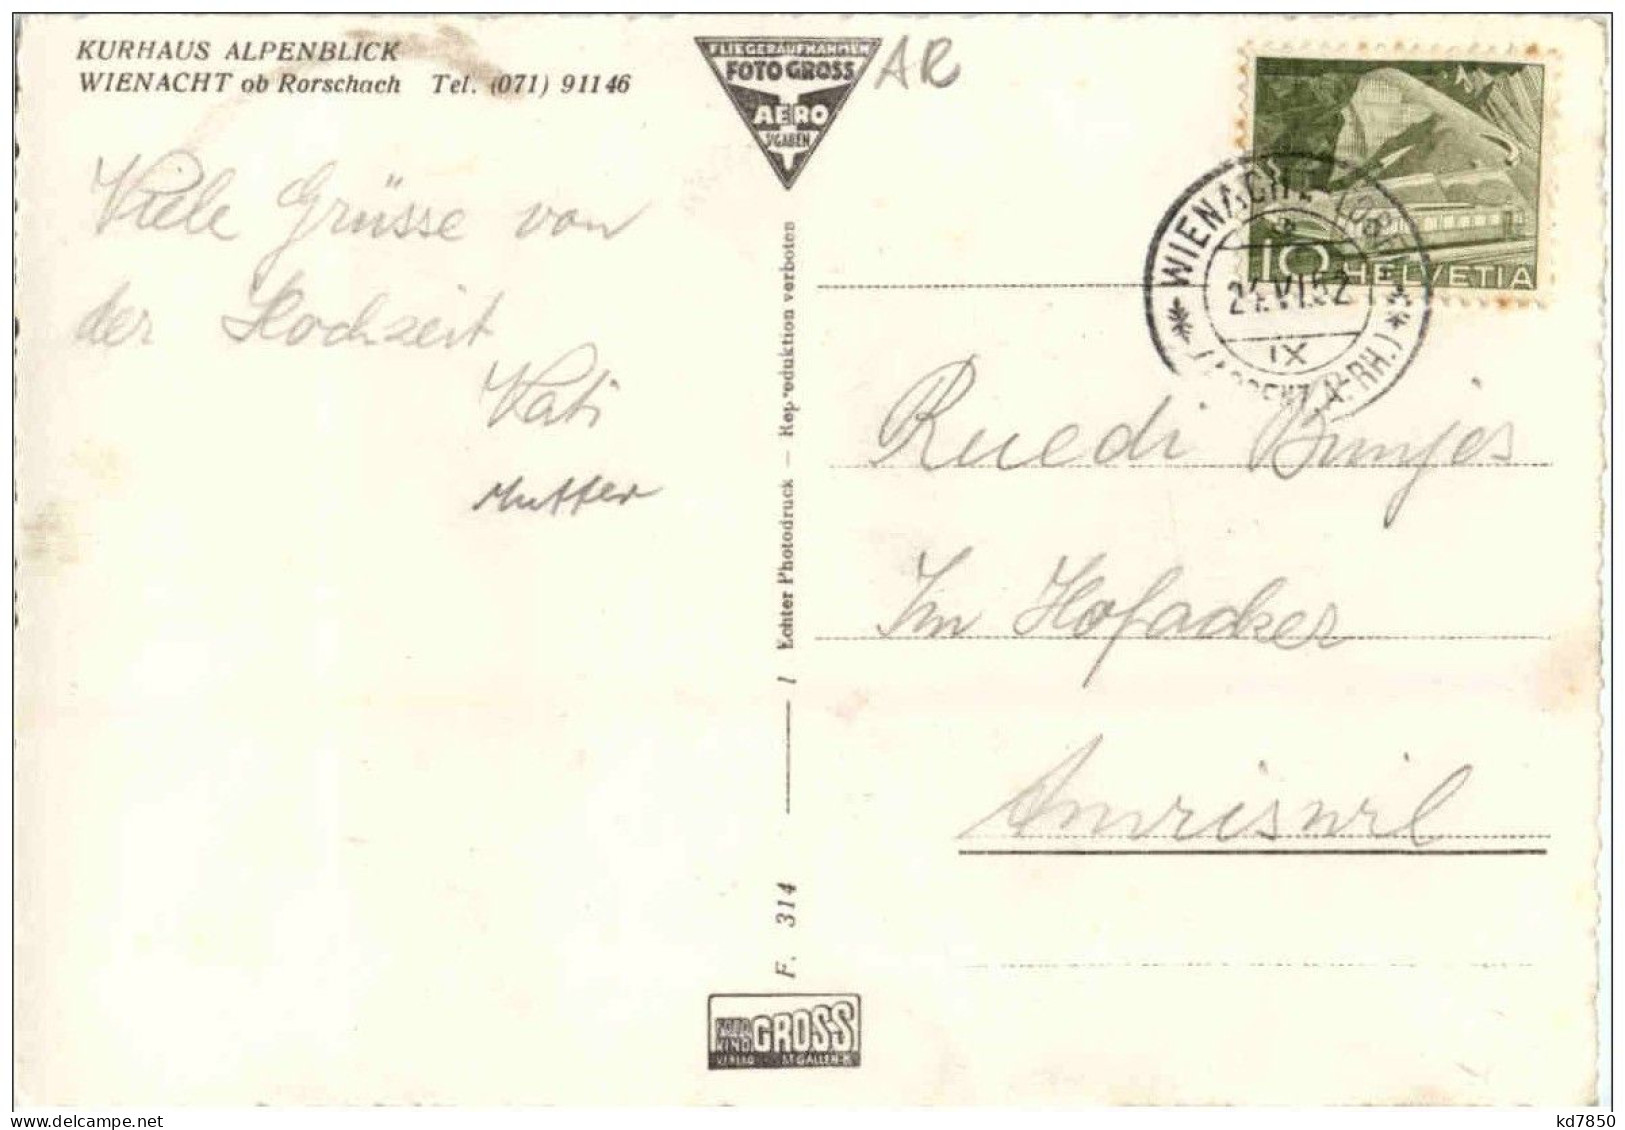 KURHAUS ALPENBLICK
WIENACHT ob Rorschach Tel. (071) 91146
FLIEGERAUFNAHMEN
FOTO GROSS
AERO
ST. GALLEN
AR
10 HELVETIA
WIENACHT-TOBEL
21.VI.52
IX
(APPENZ. A.-RH.)
Viele Grüsse von
der Hochzeit
Kati
Mutter
Ruedi Bunjes
Im Hofacker
Amriswil
F. 314 l Echter Photodruck — Reproduktion verboten
FOTO KINO GROSS
VERLAG ST. GALLEN
kd7850